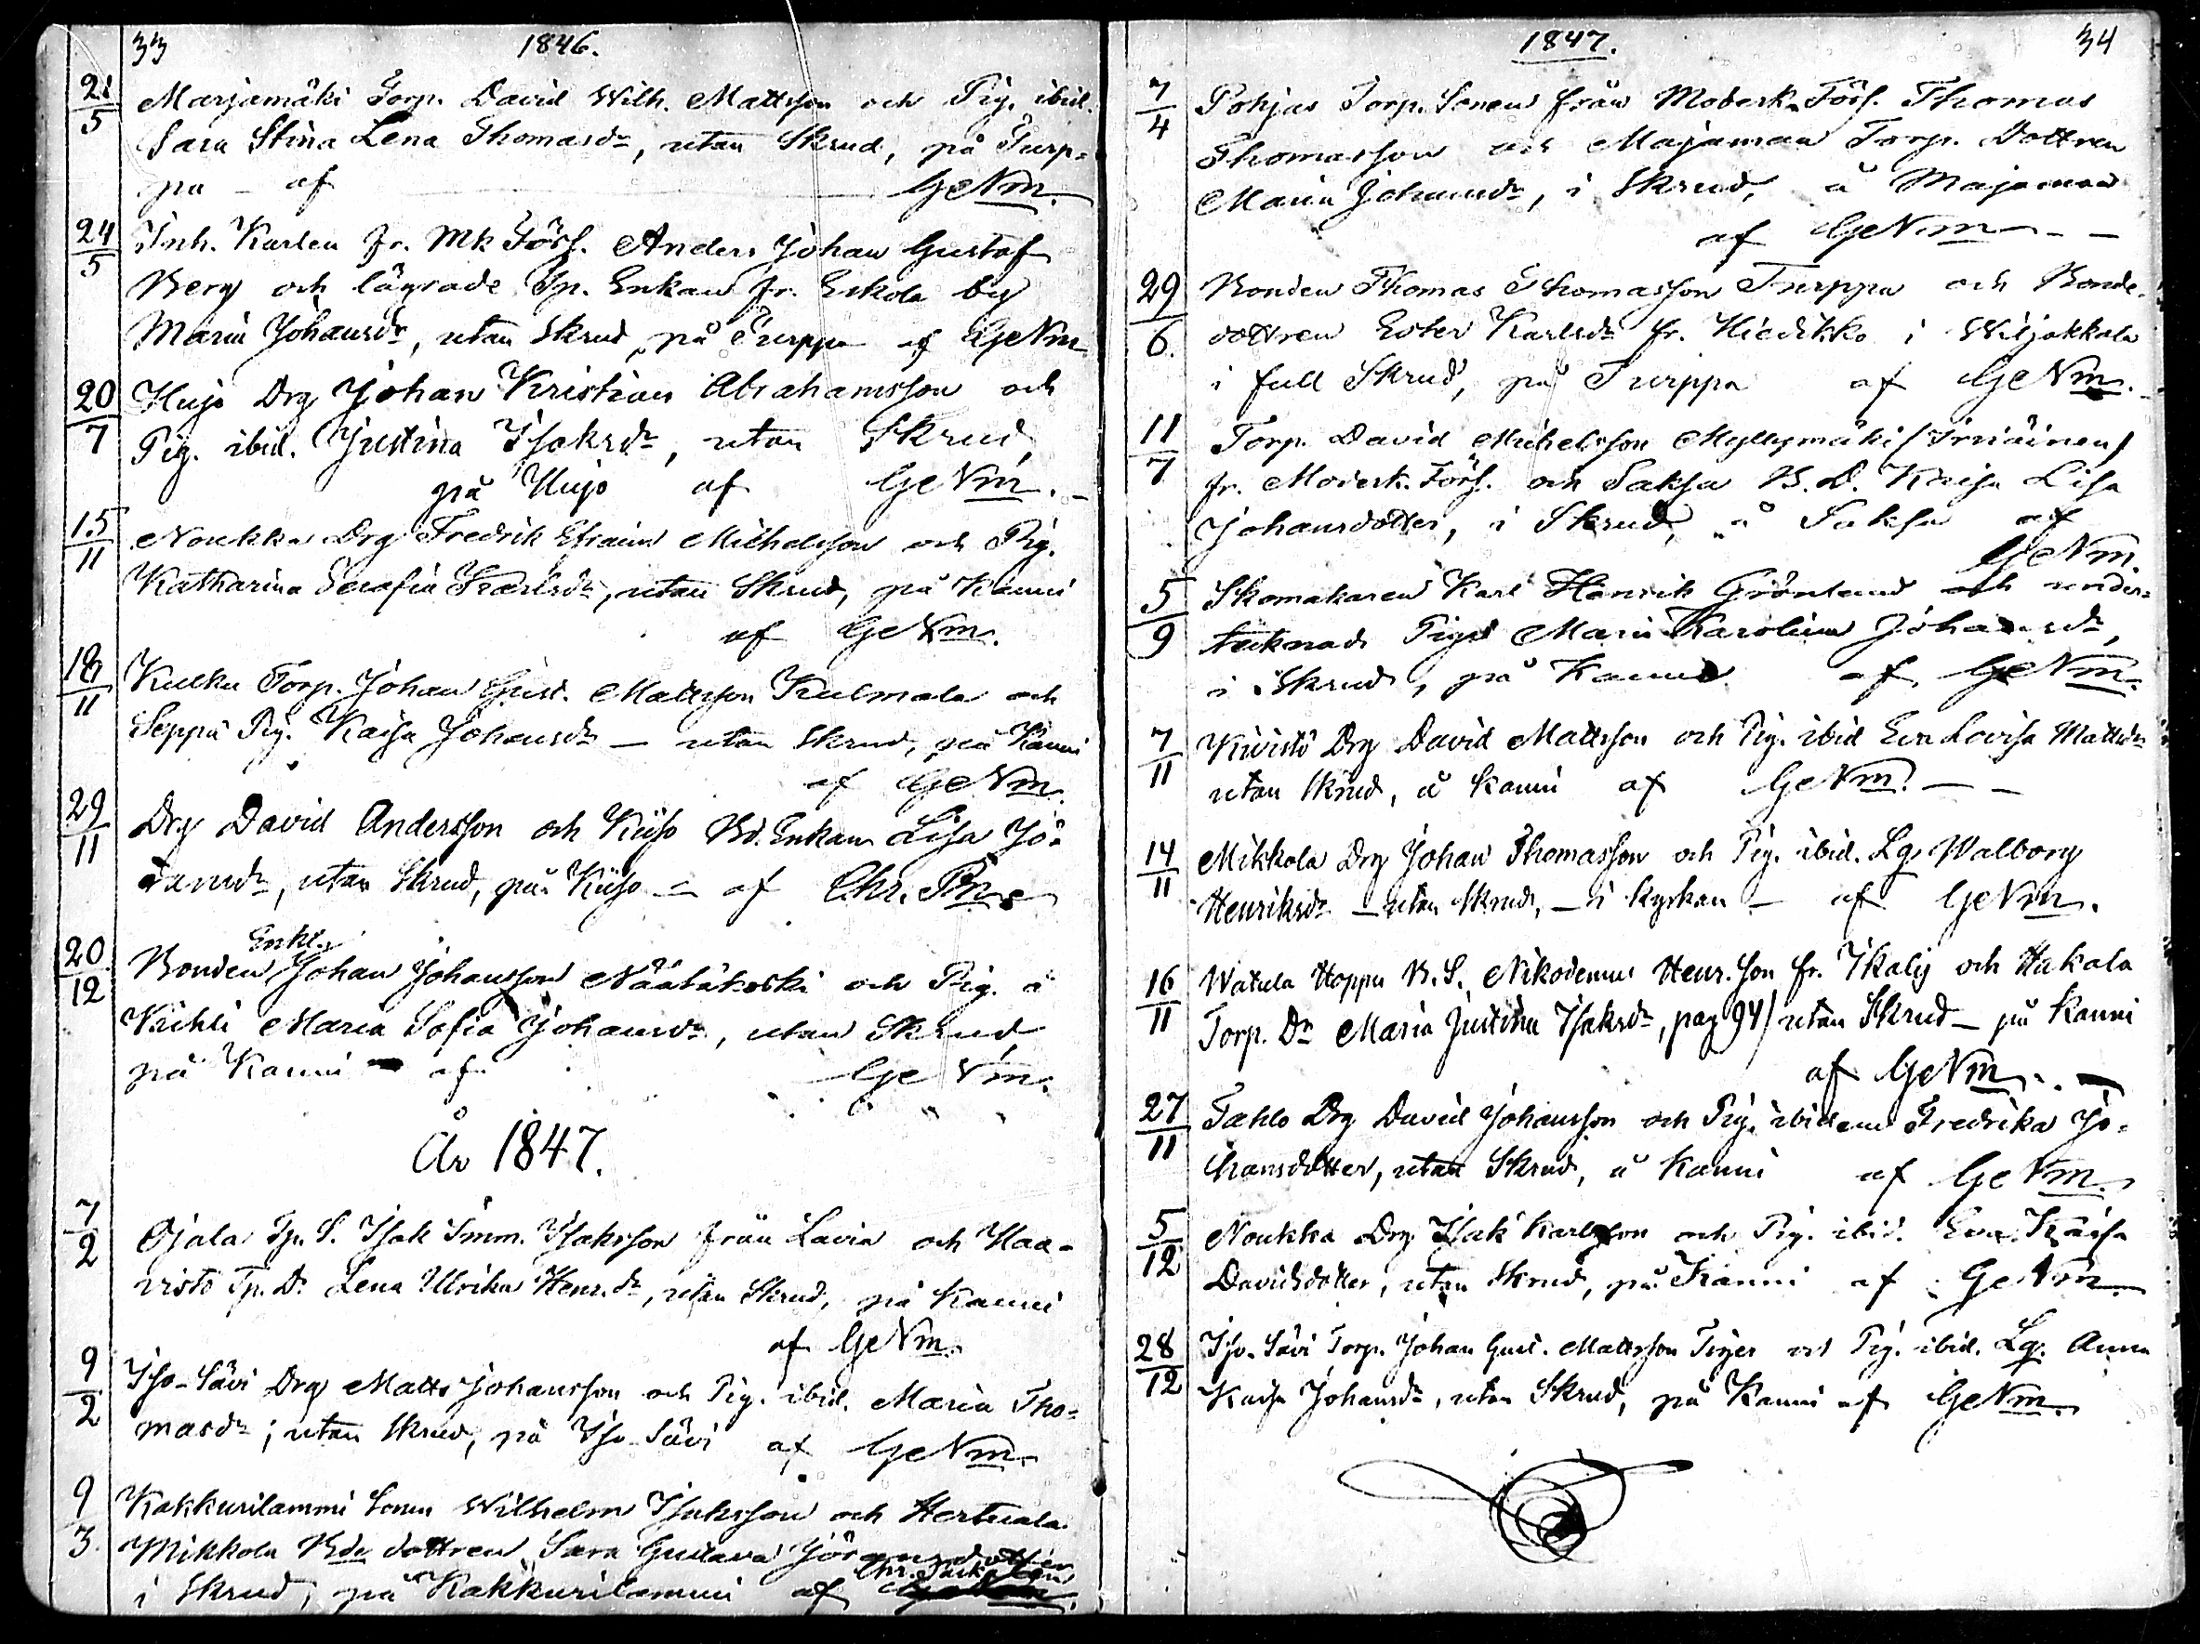 33 1846.
21/5 Marjamäki Torp. David Wilh. Mattsson och Pig. ibid.
Sara Stina Lena Thomasdr, utan Skrud, på Turp-
pa - af GeNm.
24/5 Inh. Karlen fr. Mk Förs. Anders Johan Gustaf
Berg och lägrade Tp. Enkan fr. Eskola by
Maria Johansdr, utan Skrud, på Turppa af GeNm
20/7 Hujo Drg Johan Kristian Abrahamsson och
Pig. ibid. Justina Isaksdr, utan Skrud,
på Hujo af GeNm. -
15/11 Noukka Drg Fredrik Efraim Michelsson och Pig.
Katharina Serafia Karlsdr, utan Skrud, på Kanni
af GeNm.
18/11 Kulku Torp. Johan Gust. Mattsson Kulmala och
Seppä Pig. Kaisa Johansdr - utan Skrud, på Kanni
af GeNm.
29/11 Drg David Andersson och Kiiso Bd. Enkan Lisa Jö-
ransdr, utan Skrud, på Kiiso - af Chr. Pm
20/12 Bonden Enkl. Johan Johansson Näätäkoski och Pig. å
Krihli Maria Sofia Johansdr, utan Skrud
på Kanni - af GeNm.
År 1847.
7/2 Ojala Tp. S. Isak Imm. Isaksson från Lavia och Haa-
visto Tp. D. Lena Ulrika Henr.dr, utan Skrud, på Kanni
af GeNm.
9/2 Iso-Sävi Drg Matts Johansson och Pig. ibid. Maria Tho-
masdr; utan Skrud, på Iso Sävi af GeNm.
9/3. Kakkurilammi Sonen Wilhelm Isaksson och Hertuala
Mikkola Bde dottren Sara Gustava Göransdotter
i Skrud, på Kakkurilammi af Chr.
1847. 34
7/4 Pohjas Torp. Sonen från Moderk. Förs. Thomas
Thomasson och Majamaa Torp. Dottren
Maria Johansdr, i Skrud, å Majamaa
af GeNm - -
29/6. Bonden Thomas Thomasson Turppa och Bonde-
dottren Ester Karlsdr fr. Hiedikko i Wiljakkala
i full Skrud, på Turppa af GeNm.
11/7 Torp. David Michelsson Myllymäki /
fr. Moderk. Förs. och Saksa B. D. Kaisa Lisa
Johansdotter, i Skrud, å Saksa af
GeNm.
5/9 Skomakaren Karl Henrik Grönlund och under-
tecknads Piga Maria Karolina Johansdr,
i Skrud, på Kanni af GeNm.
7/11 Kivistö Drg David Mattsson och Pig. ibid Eva Lovisa Mattsdr
utan Skrud, å Kanni af GeNm. - -
14/11 Mikkola Drg Johan Thomasson och Pig. ibid. Lg. Walborg
Henriksdr - utan Skrud, - i kyrkan - af GeNm.
16/11 Watula Hoppu B. S. Nikodemus Henr.son fr. Ikalis och Hakala
Torp. Dr Maria Justina Isaksdr, pag 94/ utan Skrud - på Kanni
af GeNm. -
27/11 Tahlo Drg David Johansson och Pig. ibidem Fredrika Jo-
hansdotter, utan Skrud, å Kanni af GeNm.
5/12 Noukka Drg Isak Karlsson och Pig. ibid. Eva Kaisa
Davidsdotter, utan Skrud, på Kanni af GeNm
28/12 Iso-Sävi Torp. Johan Gust. Mattsson Tiger och Pig. ibid. Lg. Anna
Kaisa Johansdr, utan Skrud, på Kanni af GeNm.